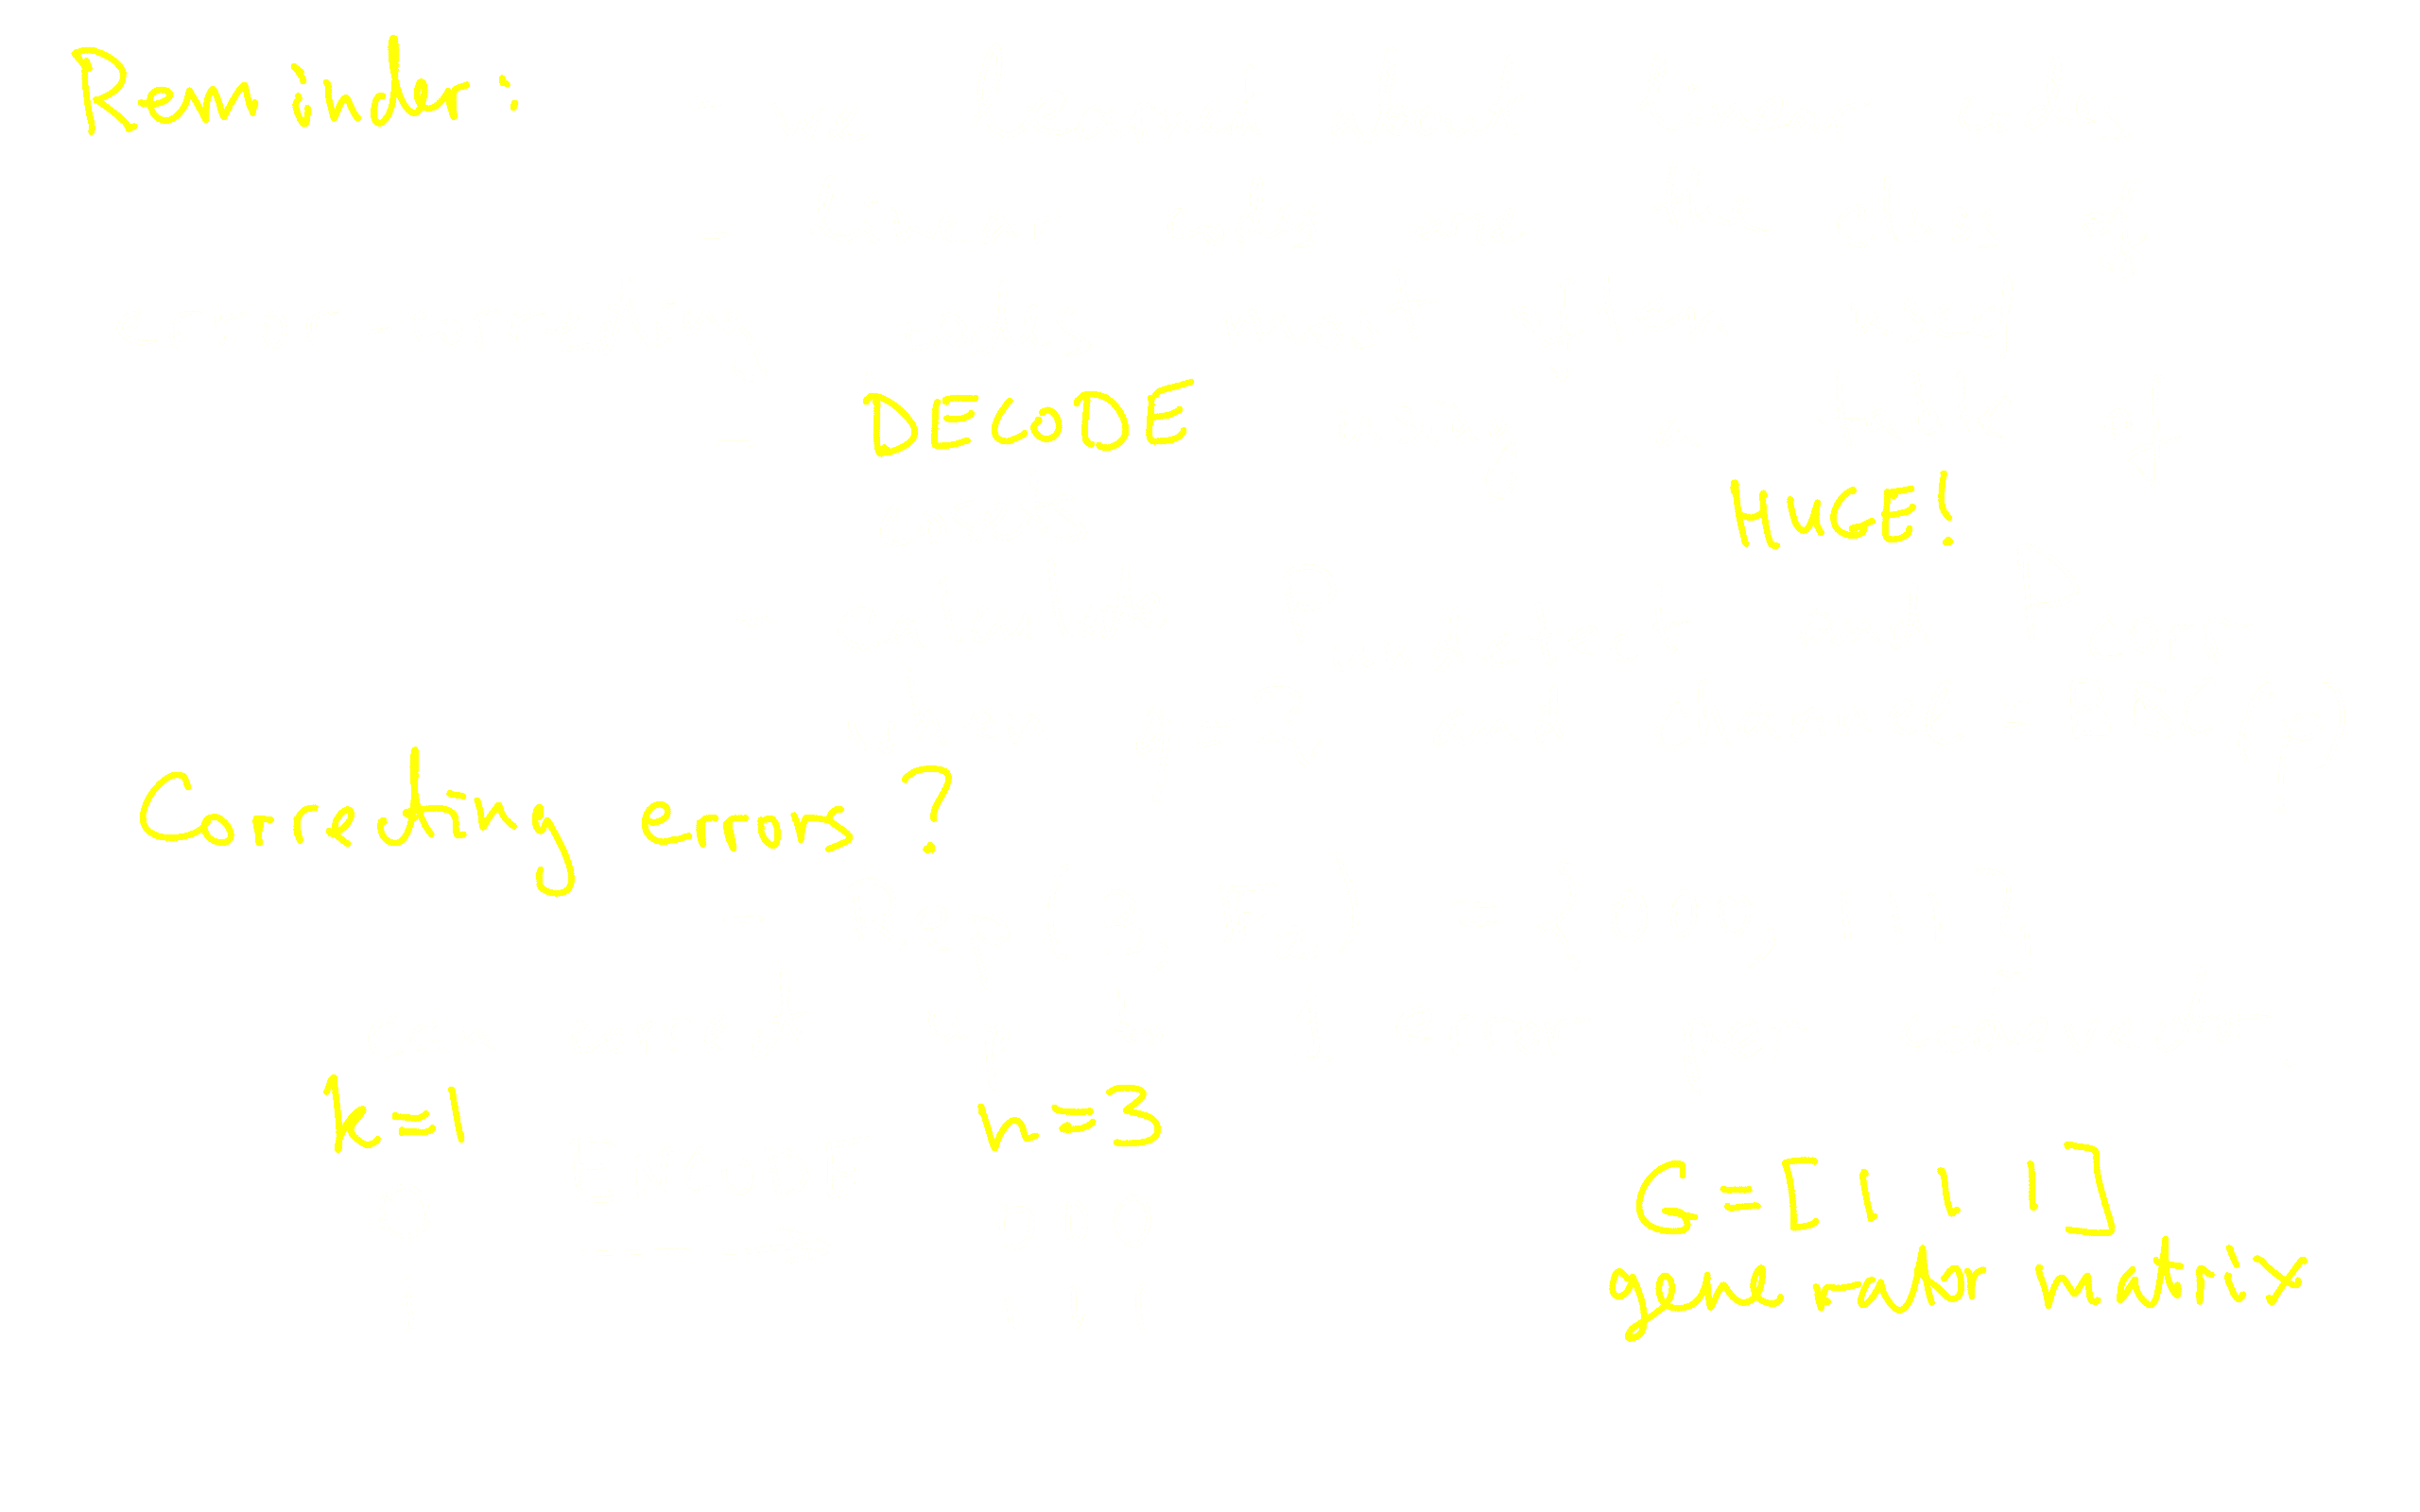 Reminder:
DECODE
HUGE!
Correcting errors?
k=1
n=3
G=[1 1 1]
generator matrix